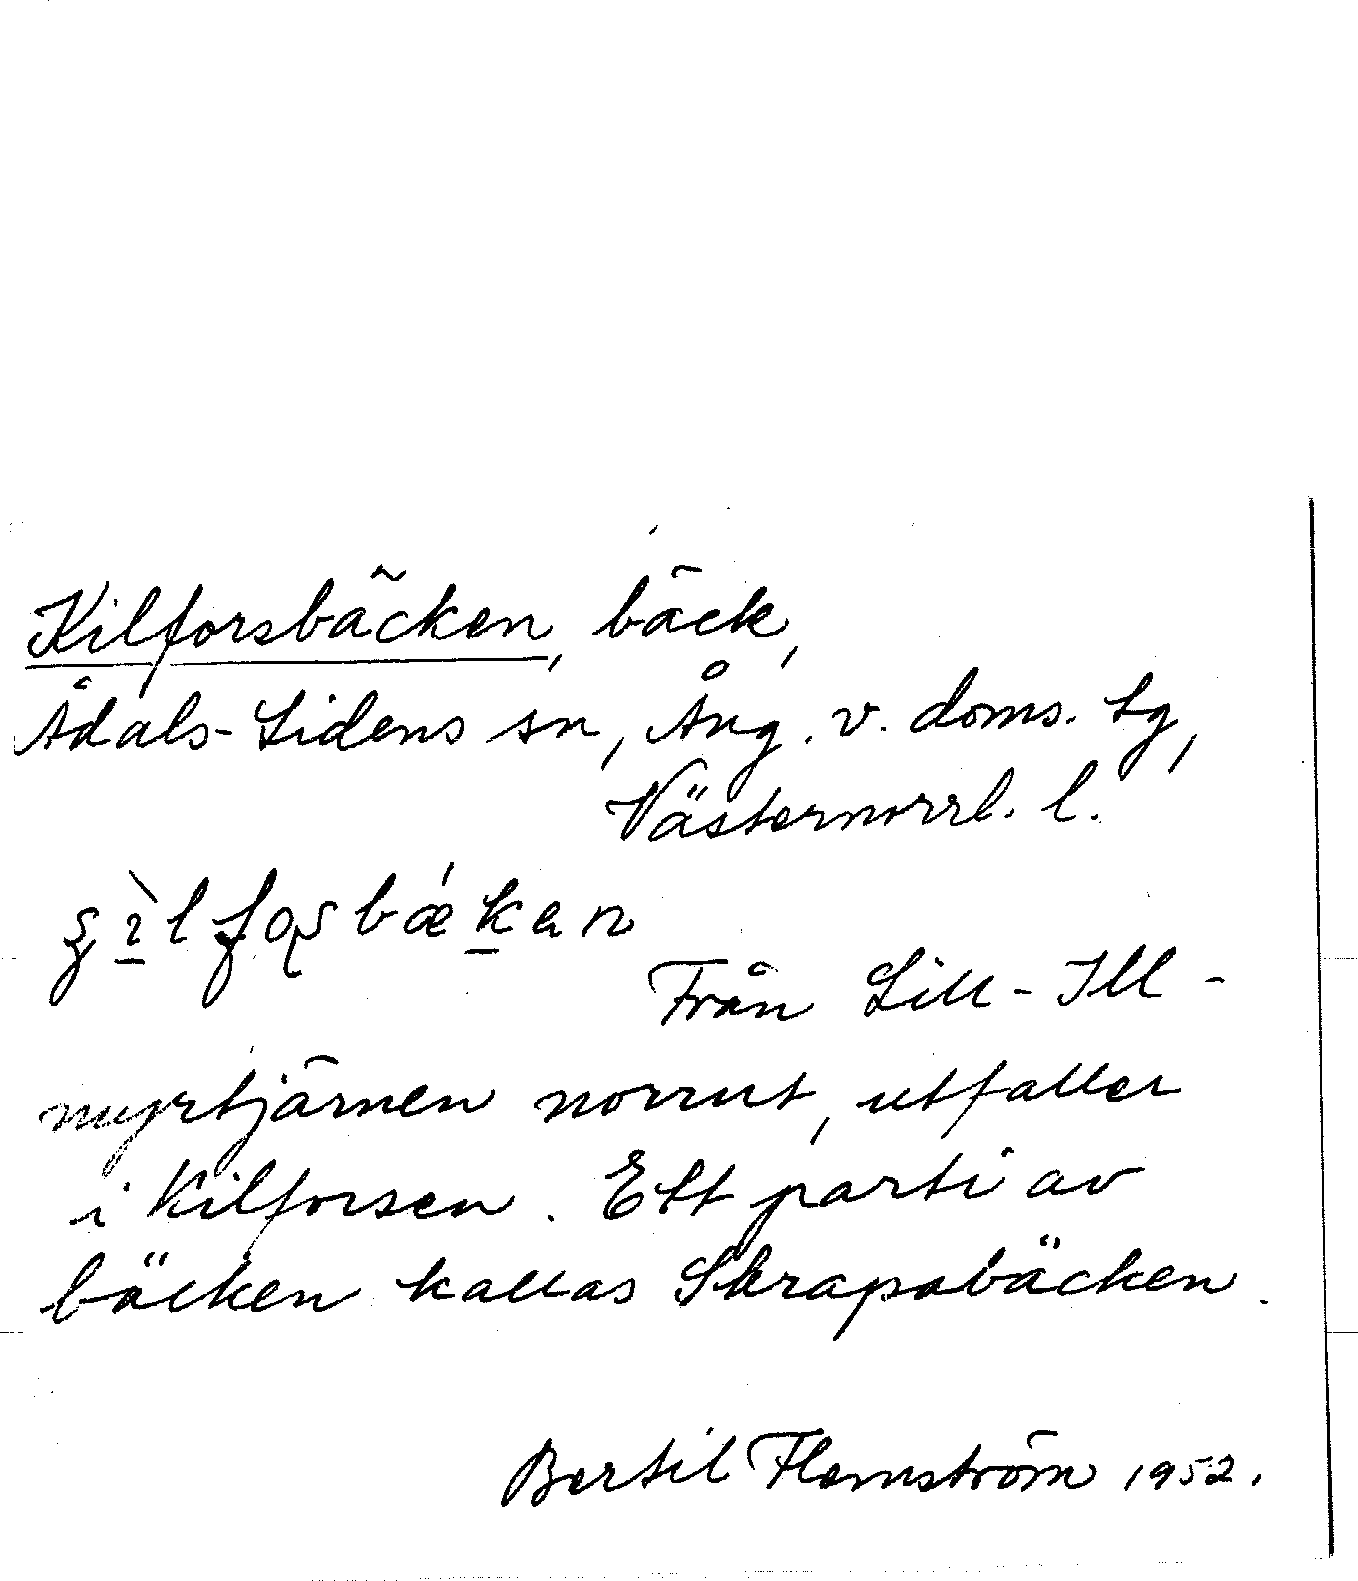 Kilforsbäcken, bäck,
Ådals-Lidens sn, Ång. v. doms. Lg,
Västernorrl. l.
Från Lill-Ill-
myrtjärnen norrut, utfaller
i Kilforsen. Ett parti av
bäcken kallas Skrapabäcken.
Bertil Flemström 1952.